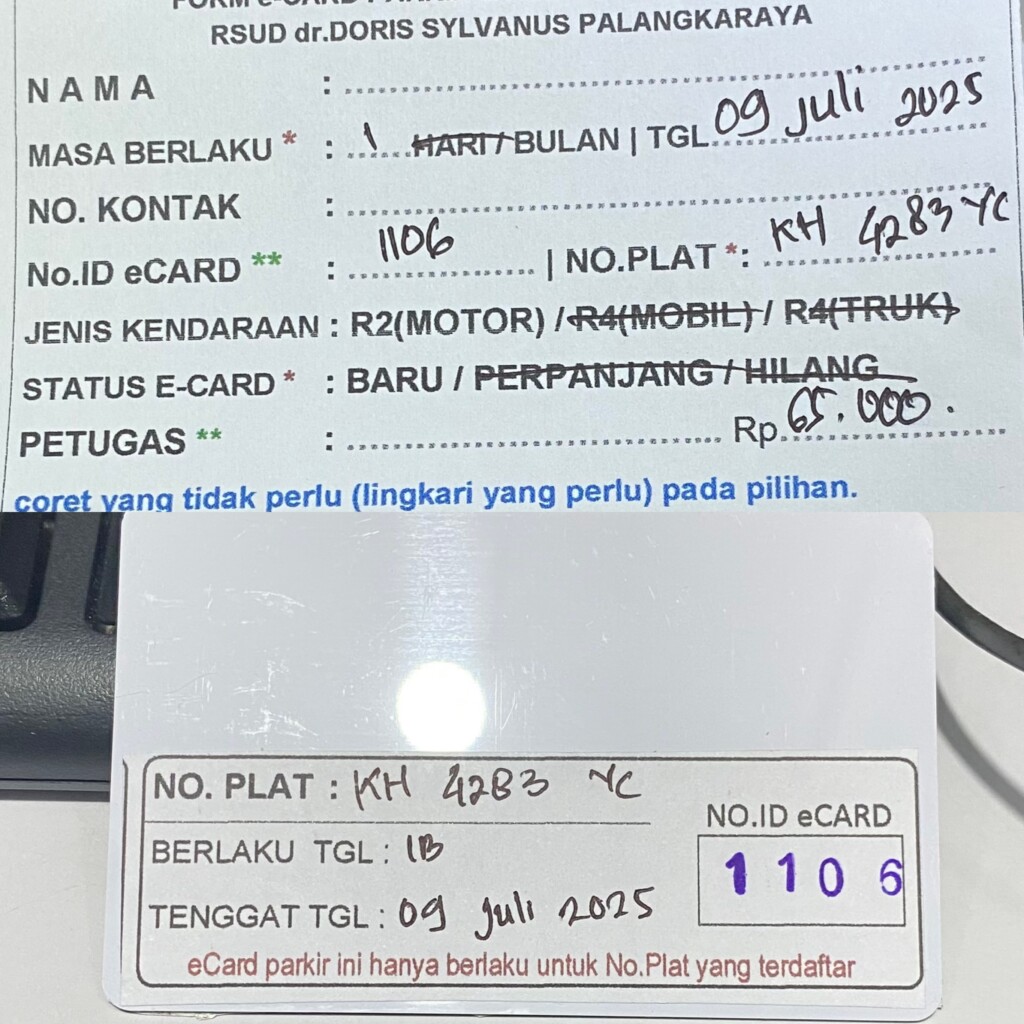 FORM e-CARD PARKIR
RSUD dr.DORIS SYLVANUS PALANGKARAYA
N A M A :
MASA BERLAKU * : 1 HARI / BULAN | TGL. 09 Juli 2025
NO. KONTAK :
No.ID eCARD ** : 1106 | NO.PLAT *: KH 4283 YC
JENIS KENDARAAN : R2(MOTOR) / R4(MOBIL) / R4(TRUK)
STATUS E-CARD * : BARU / PERPANJANG / HILANG
PETUGAS ** : Rp 65.000.
coret yang tidak perlu (lingkari yang perlu) pada pilihan.
NO. PLAT : KH 4283 YC
BERLAKU TGL : 1B
TENGGAT TGL : 09 Juli 2025
NO.ID eCARD
1106
eCard parkir ini hanya berlaku untuk No.Plat yang terdaftar